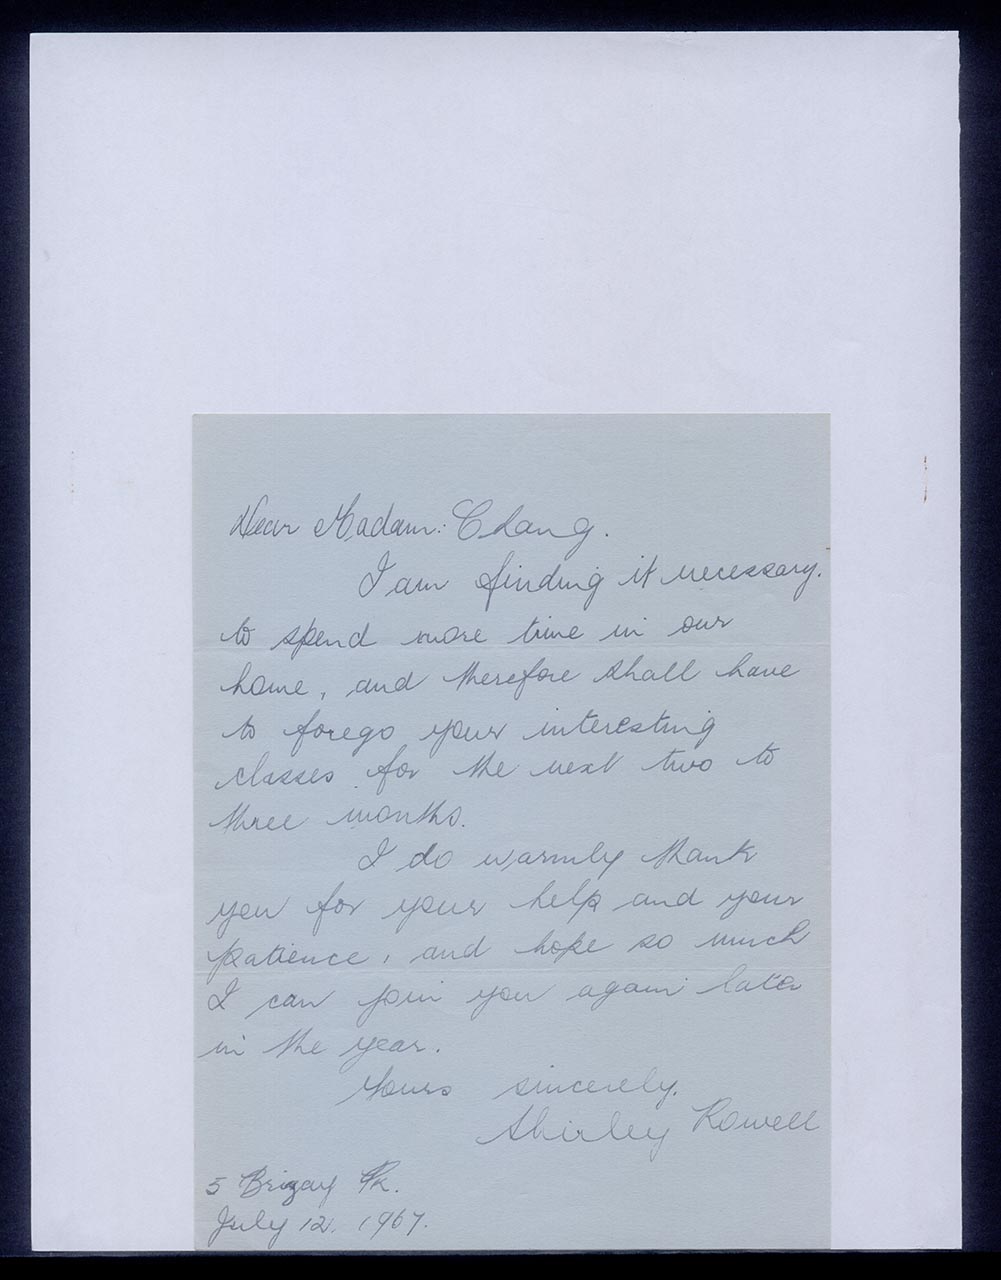 Dear Madam: Chang.
I am finding it necessary.
to spend more time in our
home, and therefore shall have
to forego your interesting
classes for the next two to
three months.
I do warmly thank
you for your help and your
patience, and hope so much
I can join you again later
in the year.
Yours sincerely.
Shirley Rowell
5 Brizay Pk.
July 12, 1967.